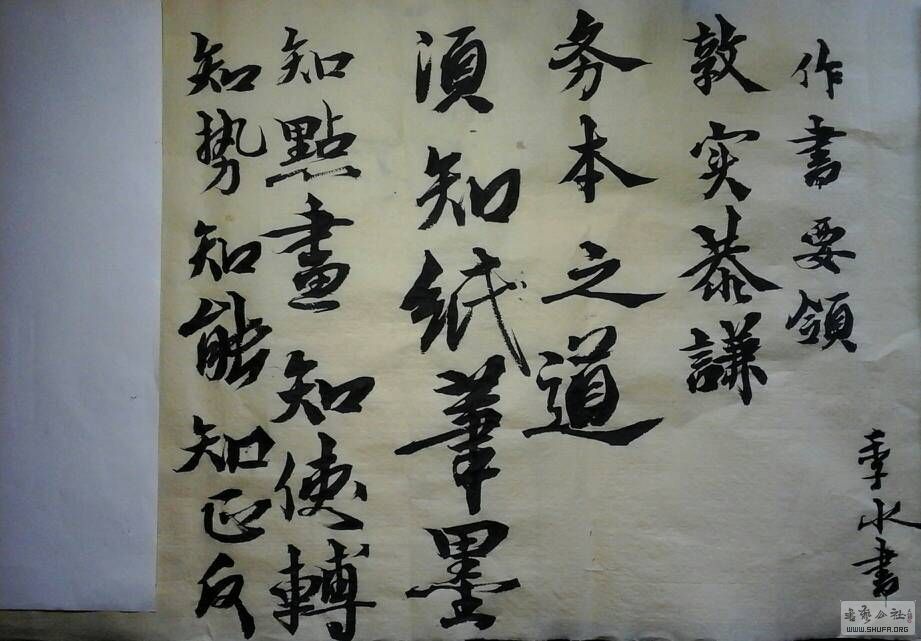 作書要領
敦实恭謙
务本之道
須知紙筆墨
知點畫知使轉
知势知能知正反
季水書
書艺公社
WWW.SHUFA.ORG